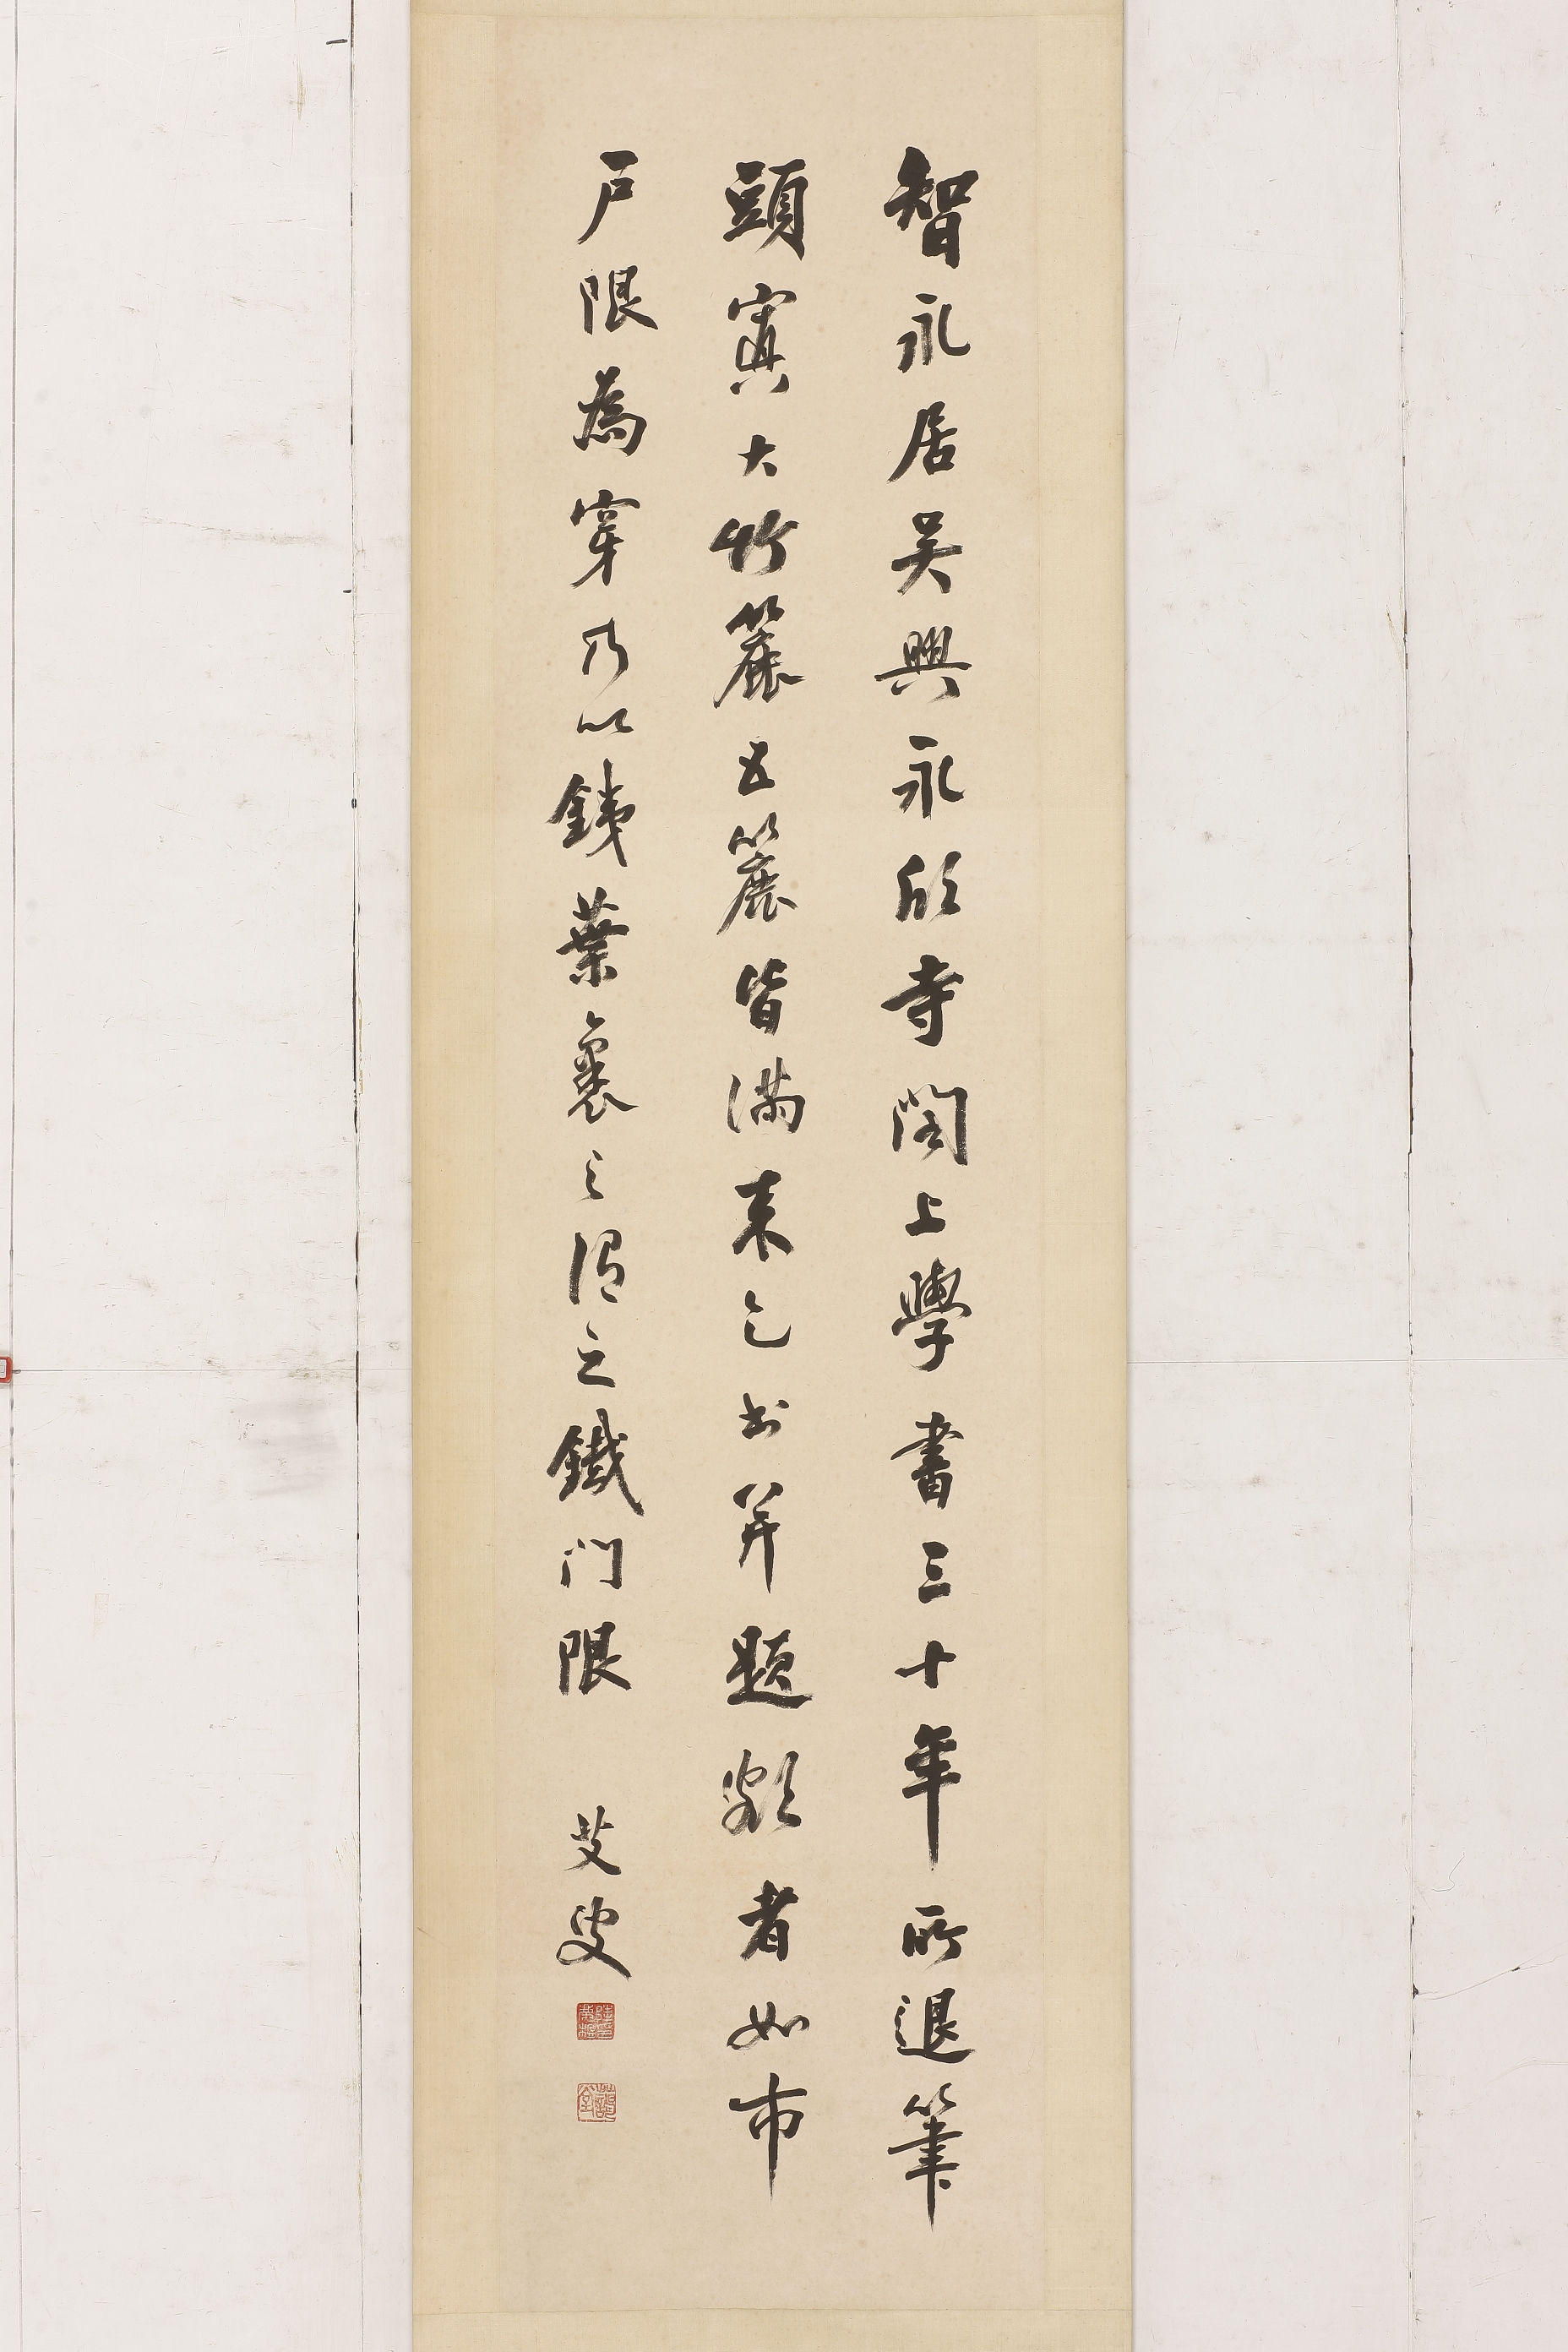 智永居吳興永欣寺閣上學書三十年所退筆
頭寘大竹簏五簏皆滿来乞书并題額者如市
戶限為穿乃以鐵葉裹之謂之鐵門限
艾叟